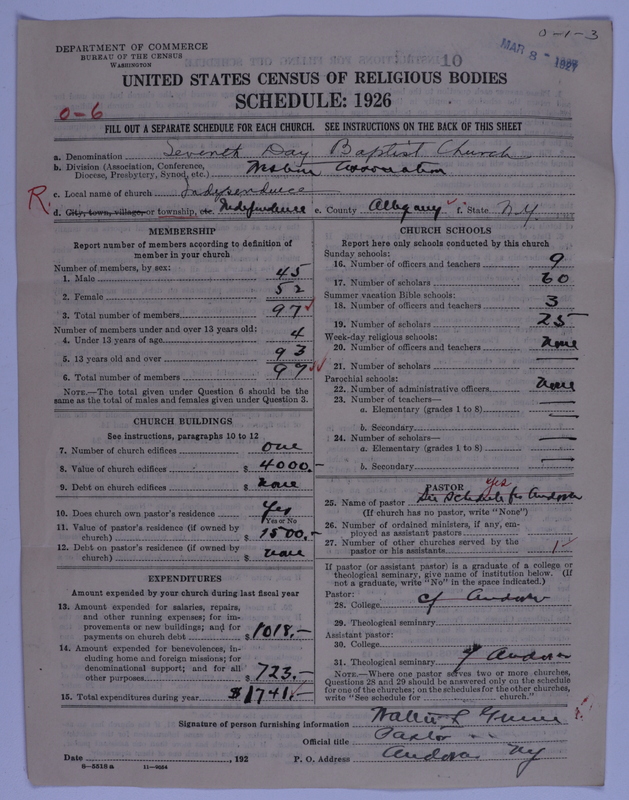 0-1-3
MAR 8 - 1927
10
DEPARTMENT OF COMMERCE
BUREAU OF THE CENSUS
WASHINGTON
UNITED STATES CENSUS OF RELIGIOUS BODIES
SCHEDULE: 1926
0-6
FILL OUT A SEPARATE SCHEDULE FOR EACH CHURCH. SEE INSTRUCTIONS ON THE BACK OF THIS SHEET
a. Denomination Seventh Day Baptist Church
b. Division (Association, Conference, Diocese, Presbytery, Synod, etc.) Western Association
R. c. Local name of church Independence
d. City, town, village, or township, etc. Independence e. County Allegany f. State N.Y.
MEMBERSHIP
Report number of members according to definition of
member in your church
Number of members, by sex:
1. Male 45
2. Female 52
3. Total number of members 97
Number of members under and over 13 years old:
4. Under 13 years of age 4
5. 13 years old and over 93
6. Total number of members 97
NOTE.—The total given under Question 6 should be the
same as the total of males and females given under Question 3.
CHURCH BUILDINGS
See instructions, paragraphs 10 to 12
7. Number of church edifices one
8. Value of church edifices $ 4000.-
9. Debt on church edifices $ none
10. Does church own pastor's residence yes
Yes or No
11. Value of pastor's residence (if owned by
church) $ 1500.-
12. Debt on pastor's residence (if owned by
church) $ none
EXPENDITURES
Amount expended by your church during last fiscal year
13. Amount expended for salaries, repairs,
and other running expenses; for im-
provements or new buildings; and for
payments on church debt $ 1018.-
14. Amount expended for benevolences, in-
cluding home and foreign missions; for
denominational support; and for all
other purposes $ 723.-
15. Total expenditures during year $ 1741.-
CHURCH SCHOOLS
Report here only schools conducted by this church
Sunday schools:
16. Number of officers and teachers 9
17. Number of scholars 60
Summer vacation Bible schools:
18. Number of officers and teachers 3
19. Number of scholars 25
Week-day religious schools:
20. Number of officers and teachers none
21. Number of scholars —
Parochial schools:
22. Number of administrative officers none
23. Number of teachers—
a. Elementary (grades 1 to 8) —
b. Secondary —
24. Number of scholars—
a. Elementary (grades 1 to 8) —
b. Secondary —
PASTOR yes
25. Name of pastor See Schedule for Andover
(If church has no pastor, write "None")
26. Number of ordained ministers, if any, em-
ployed as assistant pastors
27. Number of other churches served by the
pastor or his assistants 1
If pastor (or assistant pastor) is a graduate of a college or
theological seminary, give name of institution below. (If
not a graduate, write "No" in the space indicated.)
Pastor:
28. College cf Andover
29. Theological seminary
Assistant pastor:
30. College
31. Theological seminary cf Andover
NOTE.—Where one pastor serves two or more churches,
Questions 28 and 29 should be answered only on the schedule
for one of the churches; on the schedules for the other churches,
write "See schedule for church."
Signature of person furnishing information Walter L Greene
Official title Pastor
Date , 192 P. O. Address Andover NY
8-5518a 11-9034